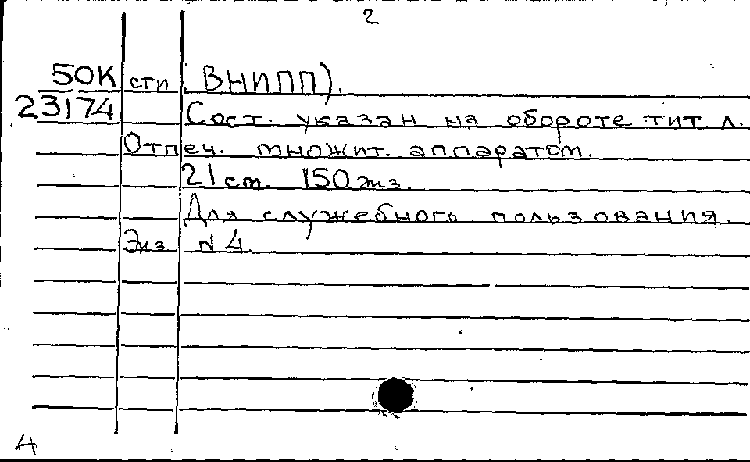 2
50К сти ВНИПП).
23174 Сост. указан на обороте тит л.
Отпеч. множит. аппаратом.
21 см. 150 экз.
Для служебного пользования.
Экз N 4.